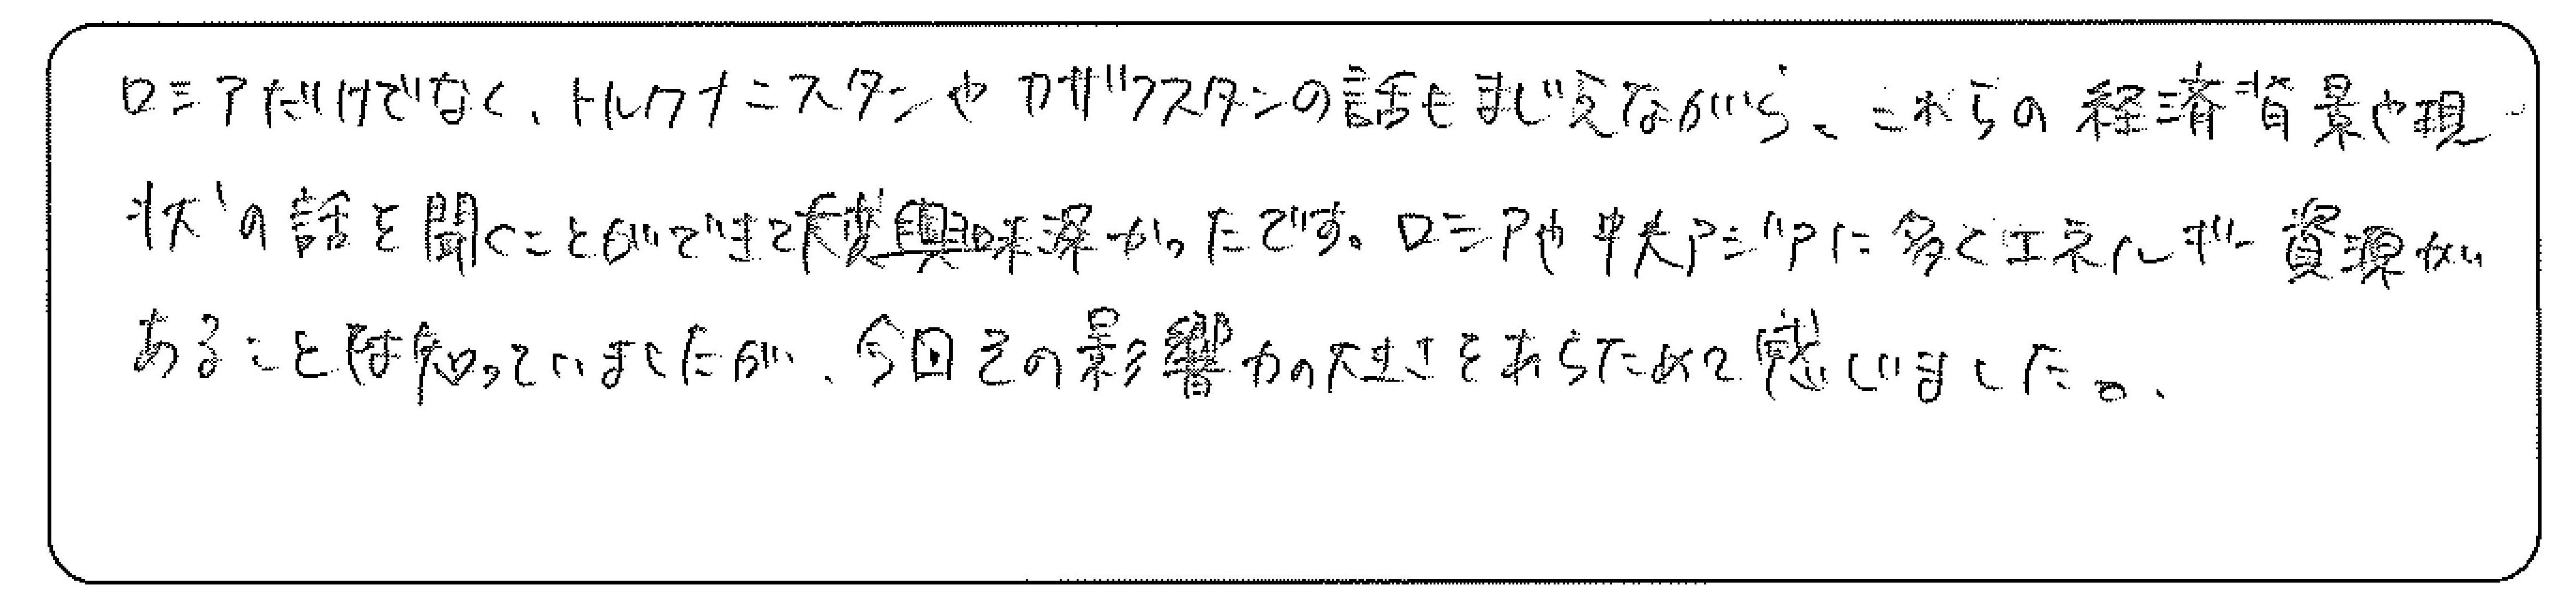 ロシアだけでなく、トルクナニスタンやカザフスタンの話もまじえながら、これらの経済背景や現
状の話を聞くことができて大変興味深かったです。ロシアや中央アジアに多くエネルギー資源が
あることは知っていましたが、今回その影響力の大きさをあらためて感じました。